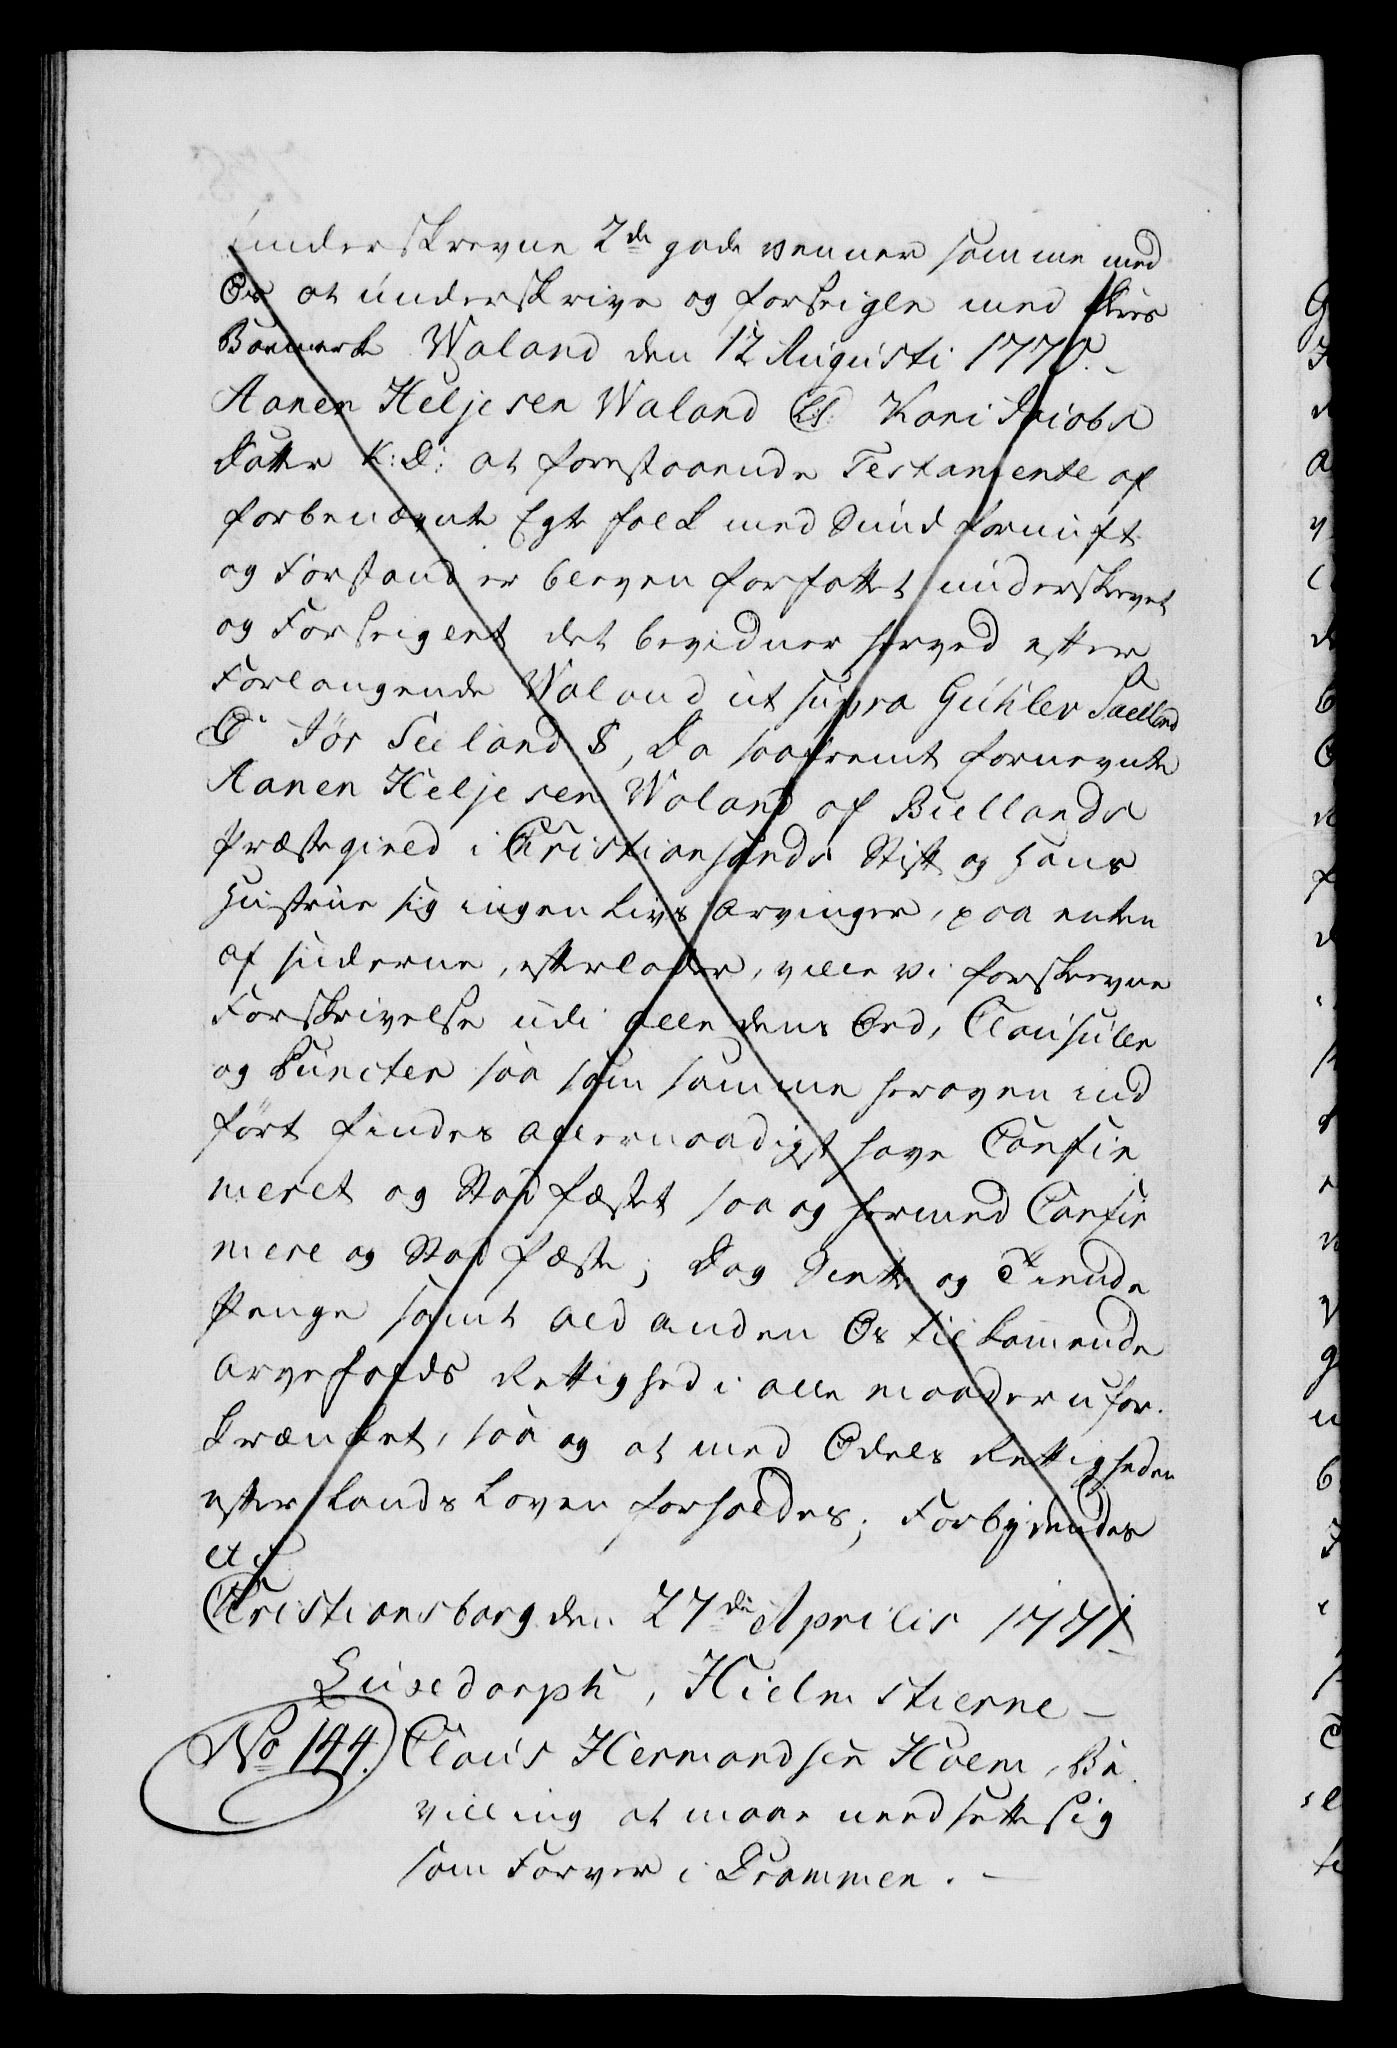 underskrevne 2de gode venner samme med
Os at underskrive og forseigle med
Boemerke Waland den 12 Augusti 1770.-
Aanen Heljesen Waland LS: Kari Jacobs
Datter K:D: at forestaaende Testamente af
forbenægnte Egte folk med Sund fornuft
og Forstand er bleven forfattet underskrevet
og Forseiglet det bevidner herved efter
Forlangende Waland ut supra Guhlev Saelland
Tør Seeland S, Da saafremt fornevnte
Aanen Heljesen Waland af Biellands
Præstegield i Christiansands Stift og hans
Hustrue sig ingen Livs Arvinger, paa enten
af siderne, efterlader, ville vi forskrevne
Forskrivelse udi alle dens Ord, Clausuler
og Puncter saa som samme heroven ind
ført findes allernaadigst have Confir
meret og Stadfæstet saa og hermed Confir
mere og Stadfæste; Dog Siette og Tiende
Penge samt ald anden Os tilkommende
Arvefalds Rettighed i alle maader ufor.
krænket, saa og at med Odels Rettigheden
efter Lands Loven forholdes; Forbydendes
etc
Christiansborg den 27de Aprilis 1771
Luxdorph, Hielmstierne -
No 144. Claus Hermandsen Holm, Be
villing at maae need sætte sig
som Farver i Drammen. -